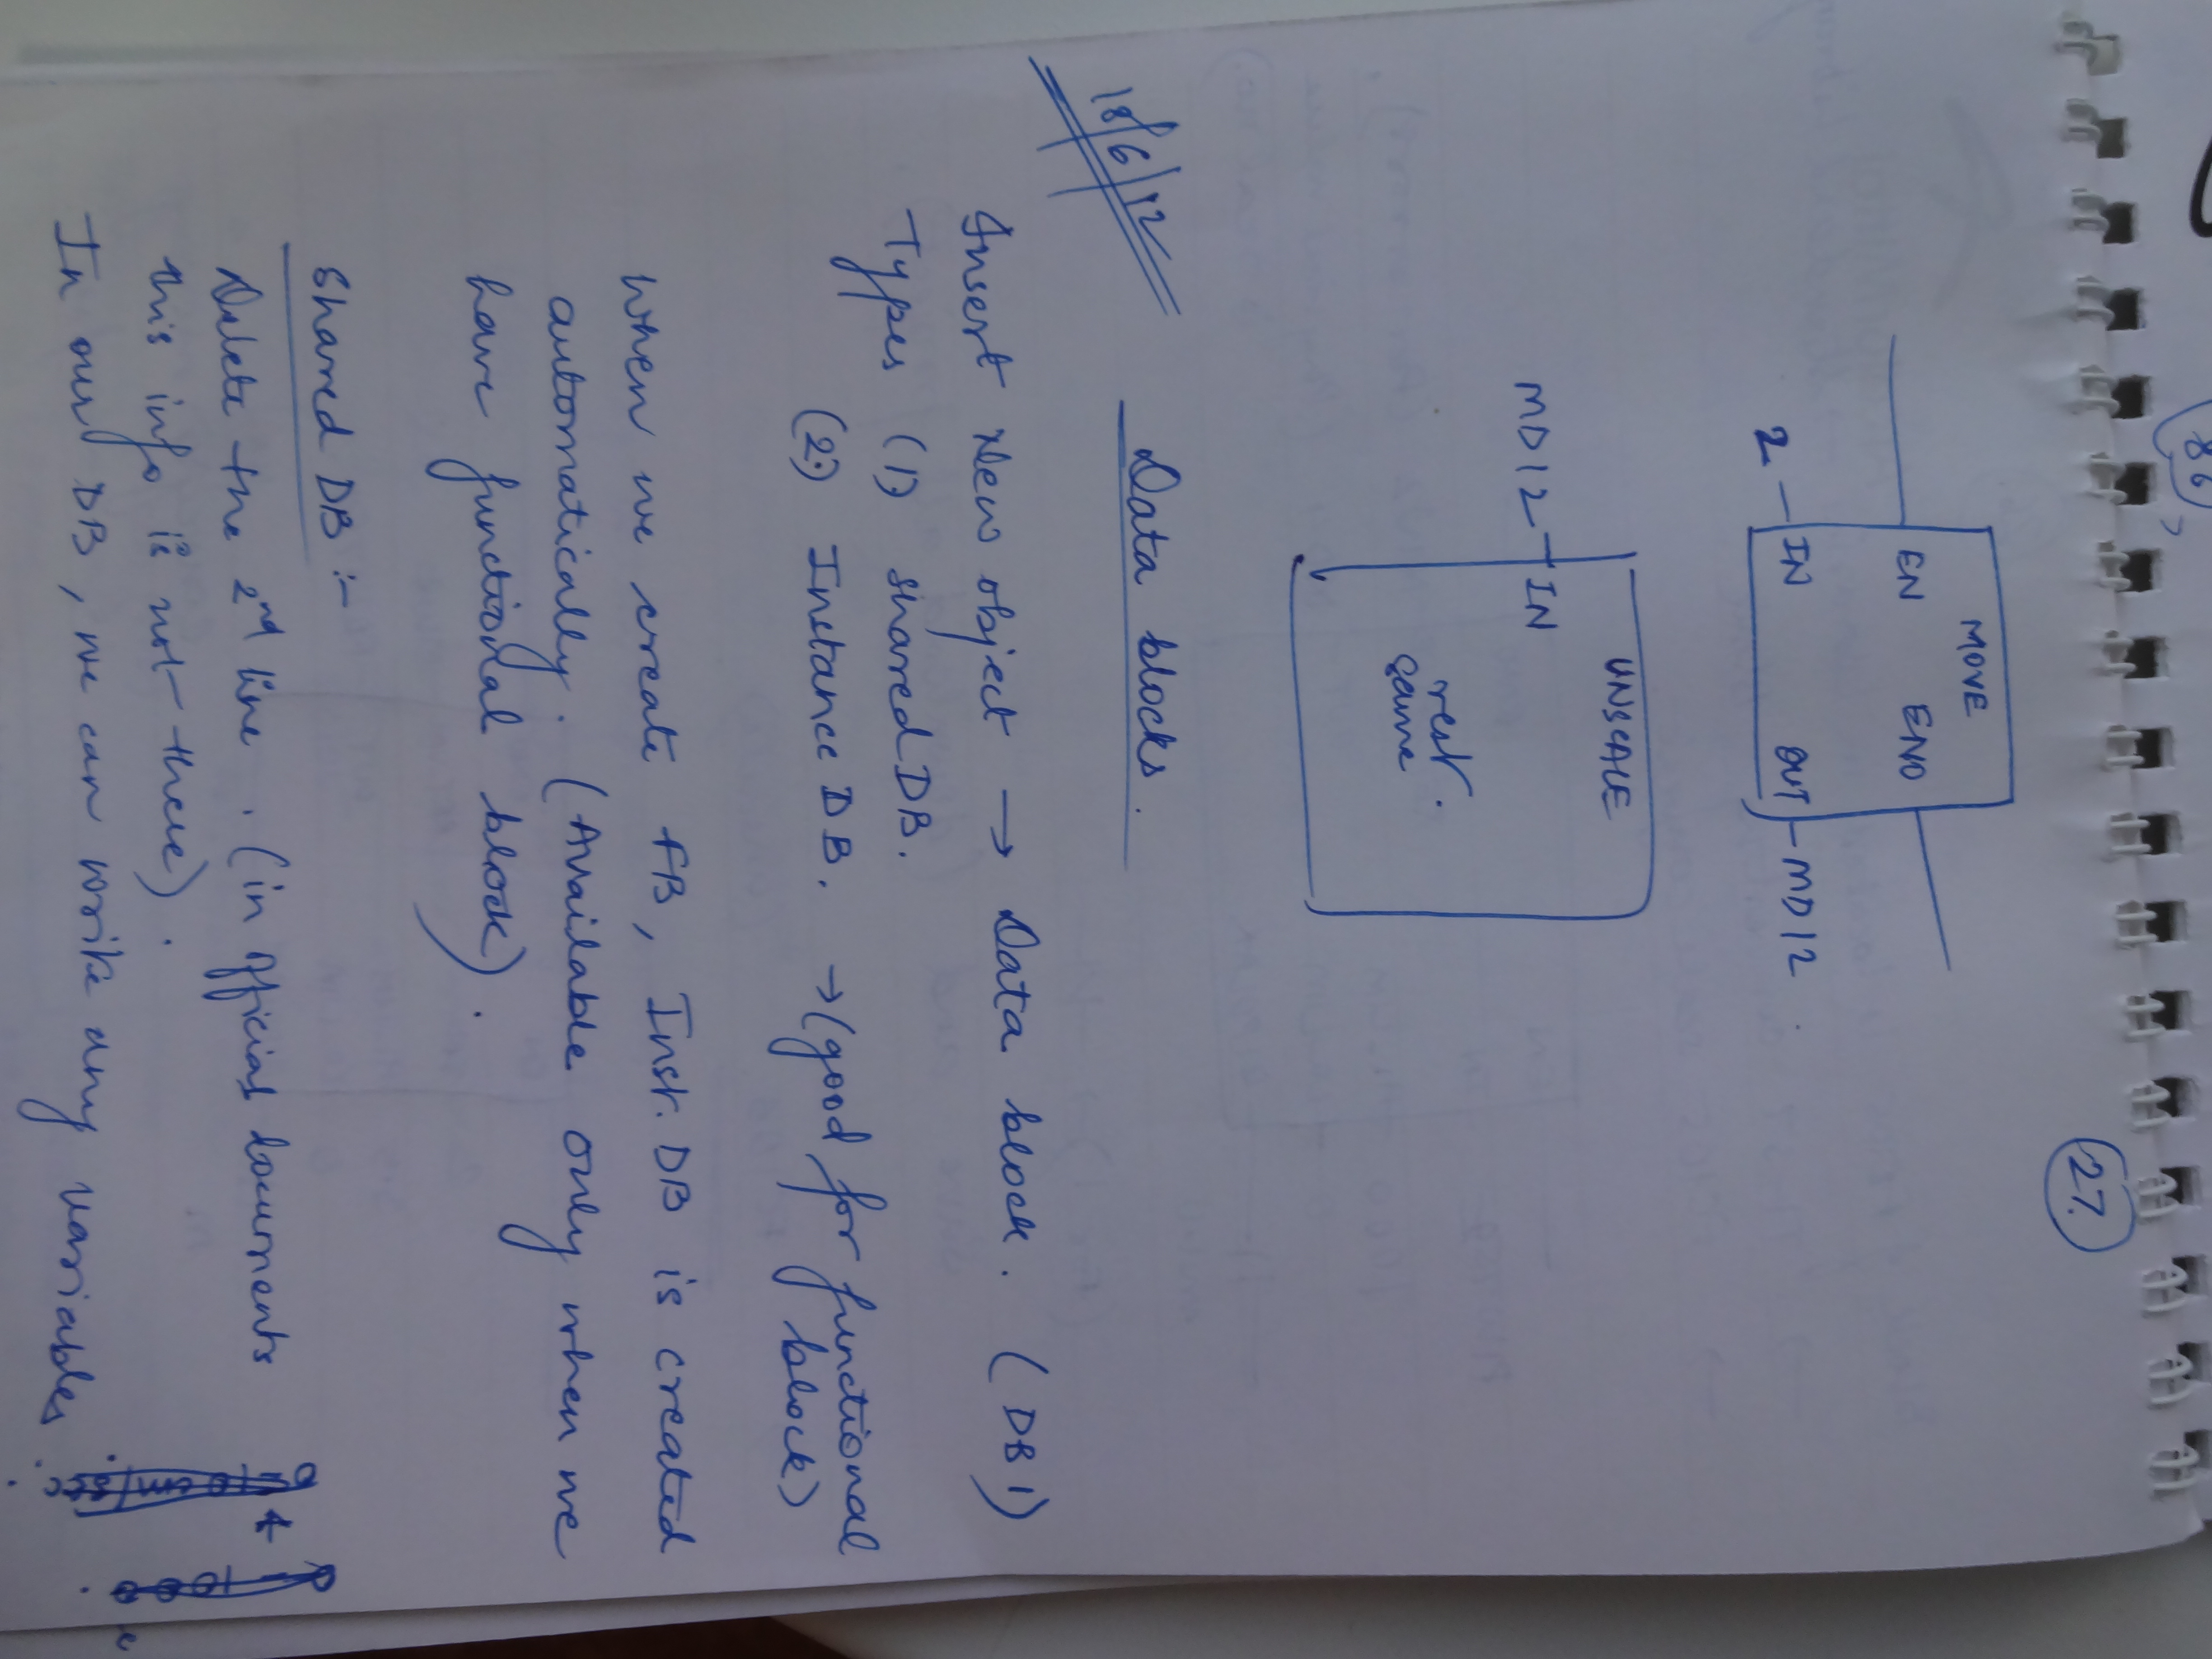 27.
MOVE
EN ENO
2 IN OUT MD12
UNSCALE
MD12 IN
rest
same
18/6/12
Data blocks.
Insert New object → Data block. (DB1)
Types (1) Shared DB.
(2) Instance DB. → (good for functional
block)
When we create FB, Inst. DB is created
automatically. (Available only when we
have functional block).
Shared DB :-
Delete the 2nd line. (in official documents
this info is not there).
In our DB, we can write any variables
86